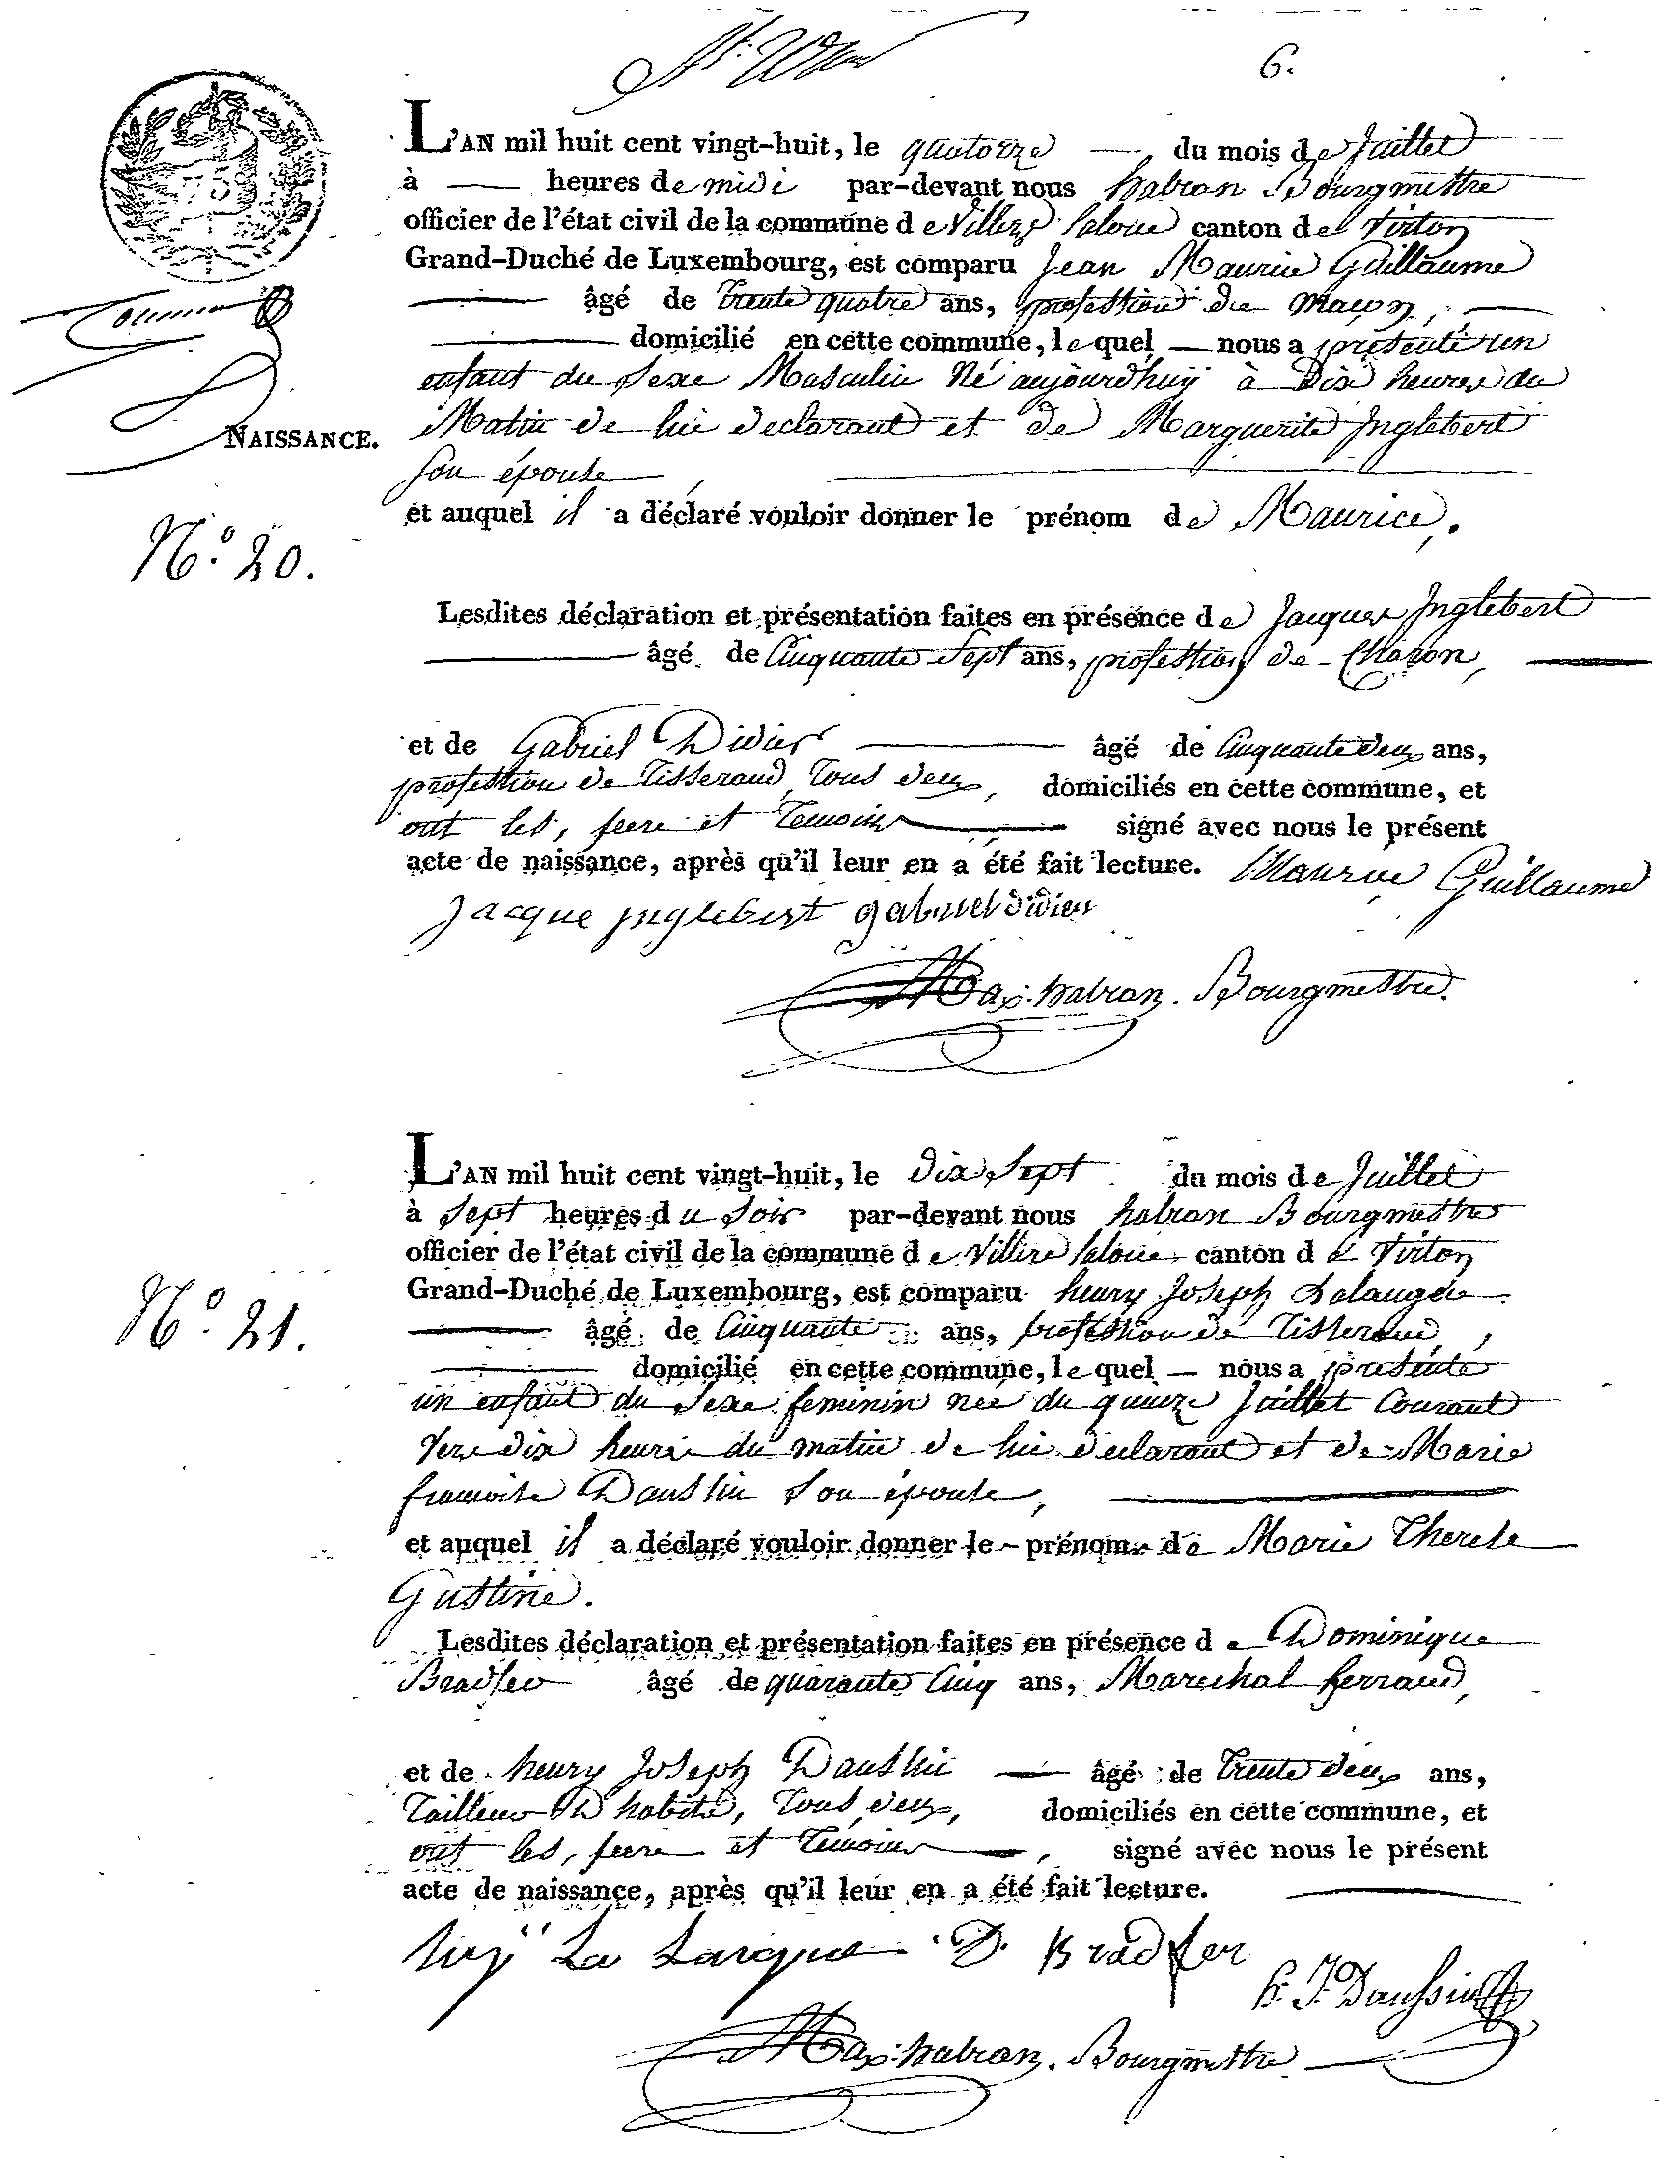 6.
L'AN mil huit cent vingt-huit, le quatorze du mois de Juillet
à heures de midi par-devant nous habran Bourgmestre
officier de l'état civil de la commune de Villers Laloue canton de Virton
Grand-Duché de Luxembourg, est comparu Jean Maurice Guillaume
âgé de trente quatre ans, profession de Maçon,
domicilié en cette commune, lequel nous a présenté un
enfant du Sexe Masculin Né aujourdhuÿ à Dix heures du
Matin de lui declarant et de Marguerite Inglebert
NAISSANCE.
Son épouse,
et auquel il a déclaré vouloir donner le prénom de Maurice.
N.o 20.
Lesdites déclaration et présentation faites en présence de Jacques Inglebert
âgé de Cinquante Sept ans, profession de Charon,
et de Gabriel Didier âgé de Cinquante deux ans,
profession de Tisserand, Tous deux, domiciliés en cette commune, et
ont les, pere et Temoins signé avec nous le présent
acte de naissance, après qu'il leur en a été fait lecture. Maurice Guillaume
Jacque Inglebert gabriel didier
Max. habran. Bourgmestre.
L'AN mil huit cent vingt-huit, le dix Sept du mois de Juillet
à Sept heures du Soir par-devant nous habran Bourgmestre
officier de l'état civil de la commune de Villers Laloue canton de Virton
N.o 21.
Grand-Duché de Luxembourg, est comparu henry Joseph
âgé de Cinquante ans, profession de Tisserand,
domicilié en cette commune, lequel nous a presenté
un enfant du Sexe feminin née du quinze Juillet Courant
Vers dix heures du matin de lui declarant et de Marie
francoise Daussin Son épouse,
et auquel il a déclaré vouloir donner le prénom de Marie Therese
Gustine.
Lesdites déclaration et présentation faites en présence de Dominique
Bradfer âgé de quarante Cinq ans, Marechal ferrand,
et de henry Joseph Daussin âgé de Trente deux ans,
Tailleur D'habits, Tous deux, domiciliés en cette commune, et
ont les, pere et Temoins, signé avec nous le présent
acte de naissance, après qu'il leur en a été fait lecture.
D. Bradfer
h. J. Daussin
Max. habran. Bourgmestre